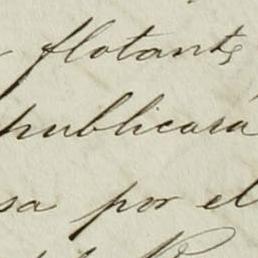 flotante
publicará
sa por el